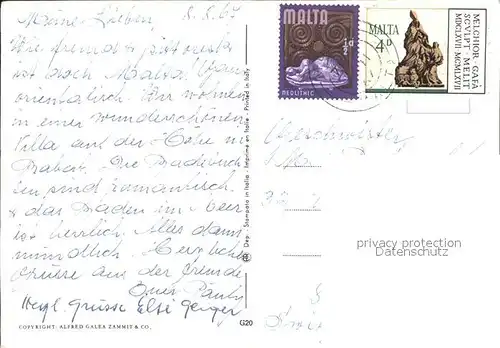 Meine Lieben, 8.8.67
Wie fremd & pittoresk
ist doch Malta! Ganz
orientalisch! Wir wohnen
in einer wunderschönen
Villa auf der Höhe in
Rabat. Die Badebuch
ten sind romantisch
& das Baden im Meer
ist herrlich. Alles dann
mündlich. Herzliche
Grüsse aus der Fremde
Euer
Herzl. Grüsse Elsi
COPYRIGHT: ALFRED GALEA ZAMMIT & CO.
G20
Dep. - Stampato in Italia - Imprimé en Italie - Printed in Italy
MALTA
1½d
NEOLITHIC
MALTA
4d
MELCHIOR GAFÀ
SCVLPT MELIT
MDCLXVII MCMLXVII
Geschwister
privacy protection
Datenschutz